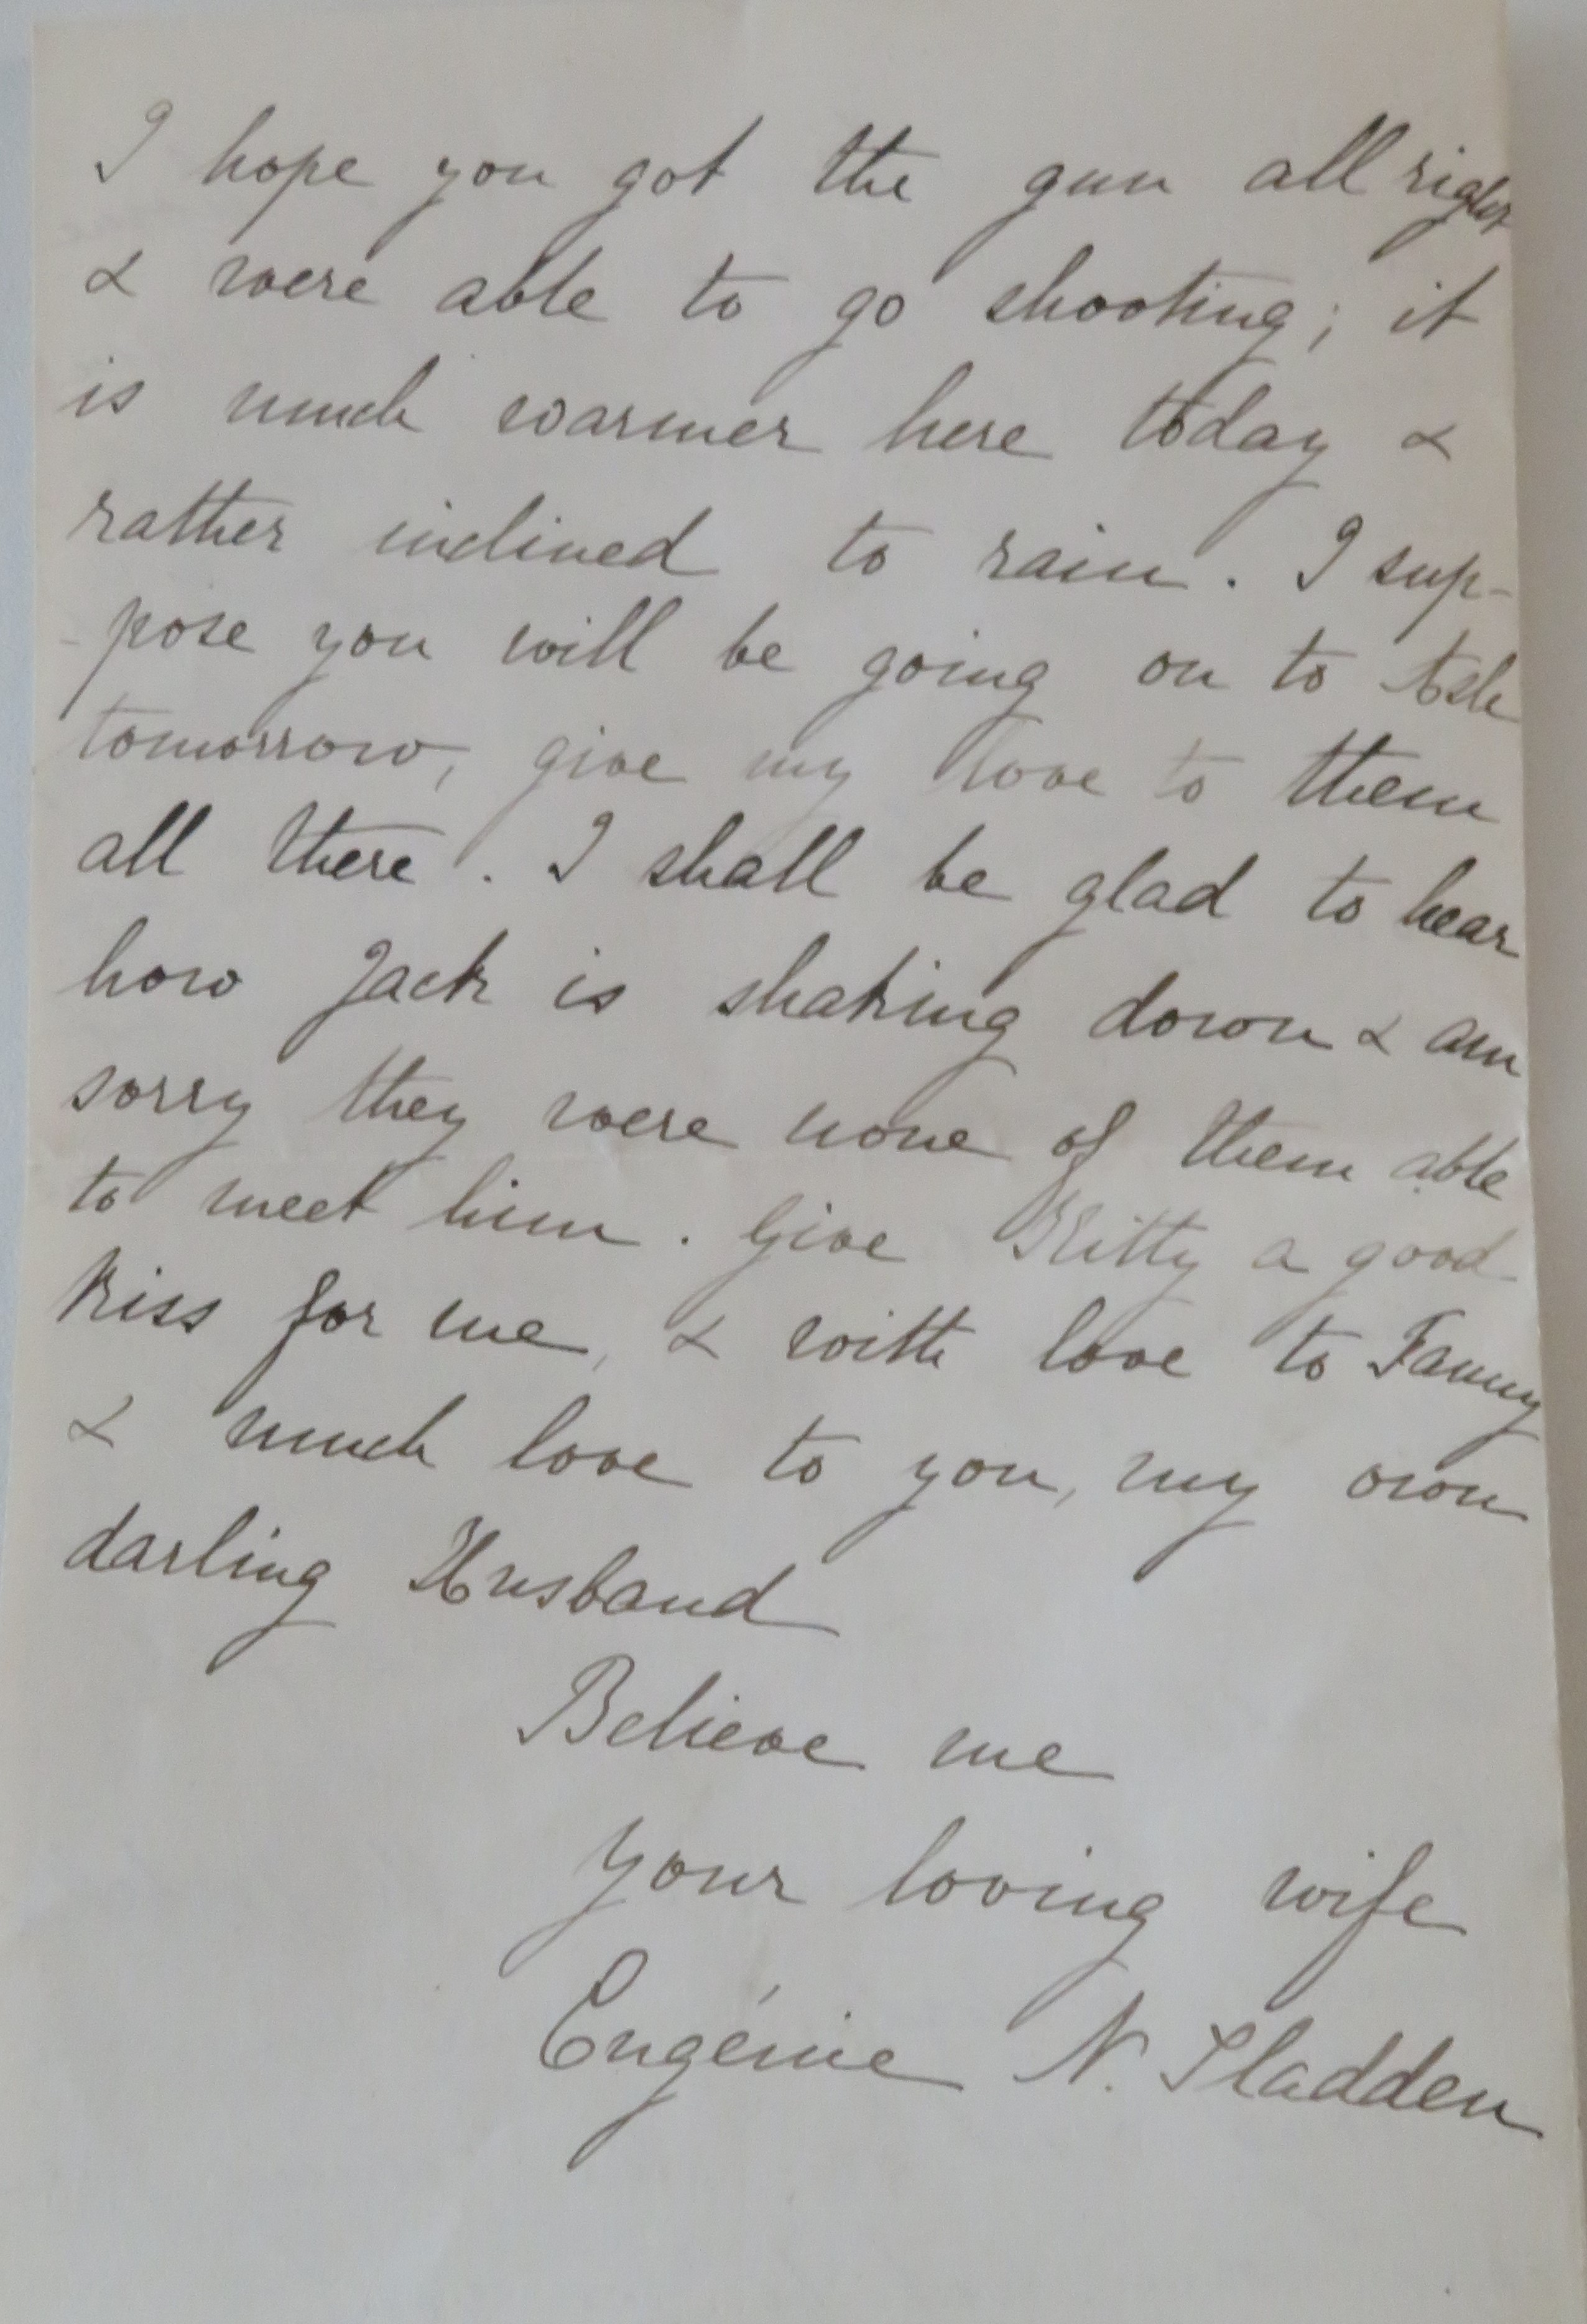 I hope you got the gun all right
& were able to go shooting; it
is much warmer here today &
rather inclined to rain. I sup-
-pose you will be going on to Ash
tomorrow, give my love to them
all there. I shall be glad to hear
how Jack is shaking down & am
sorry they were none of them able
to meet him. Give Kitty a good
kiss for me, & with love to Fanny
& much love to you, my own
darling Husband
Believe me
your loving wife
Eugénie N. Sladden